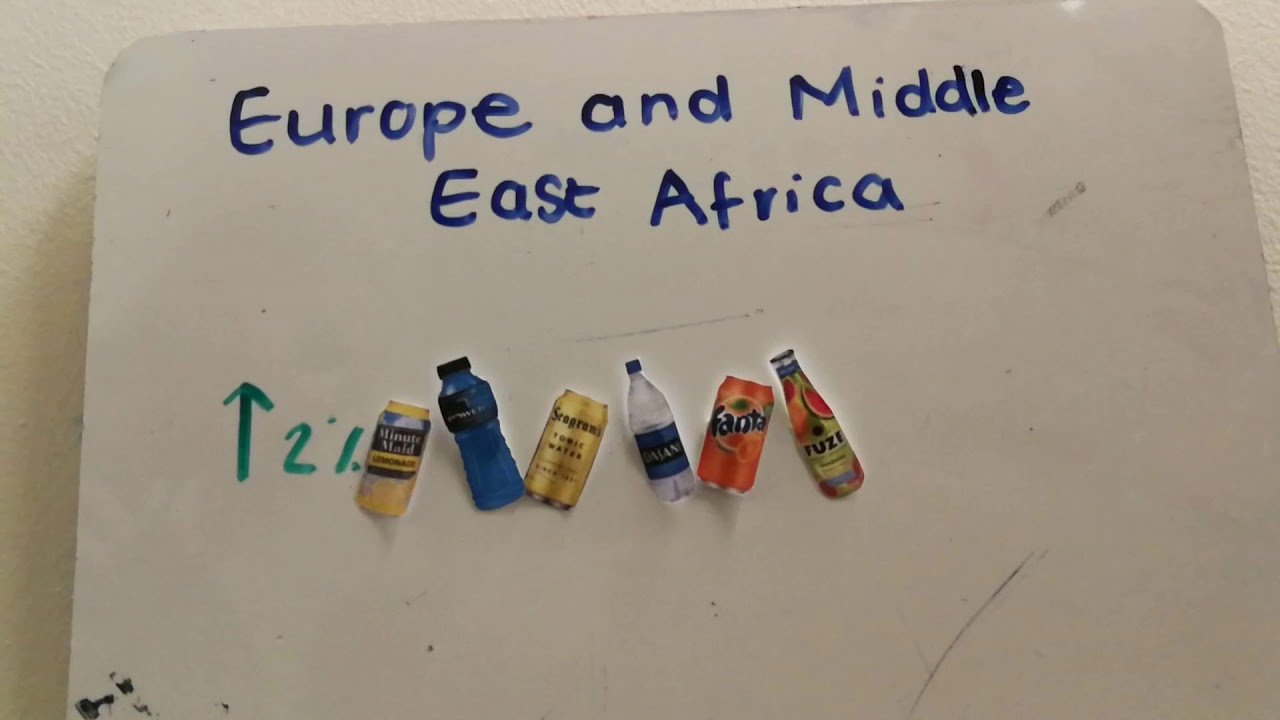 Europe and Middle
East Africa
↑ 2%
Minute
Maid
LEMONADE
POWER
Seagram's
TONIC
WATER
DASANI
Fanta
FUZE